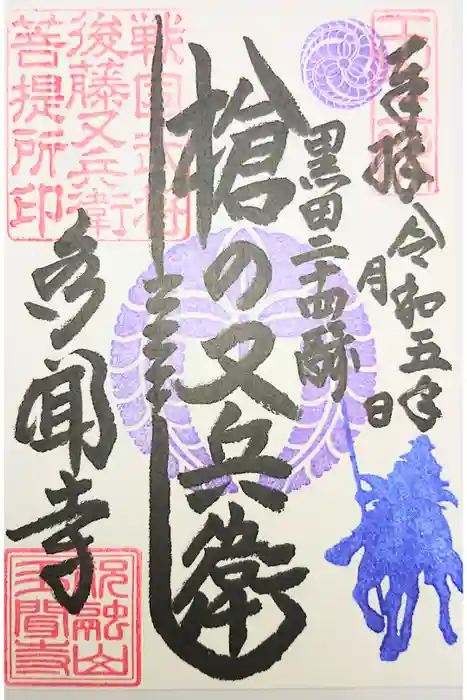 奉拝
令和五年
月　日
黒田二十四騎
槍の又兵衛
多聞寺
戦国武将
後藤又兵衛
菩提所印
祝融山
多聞寺